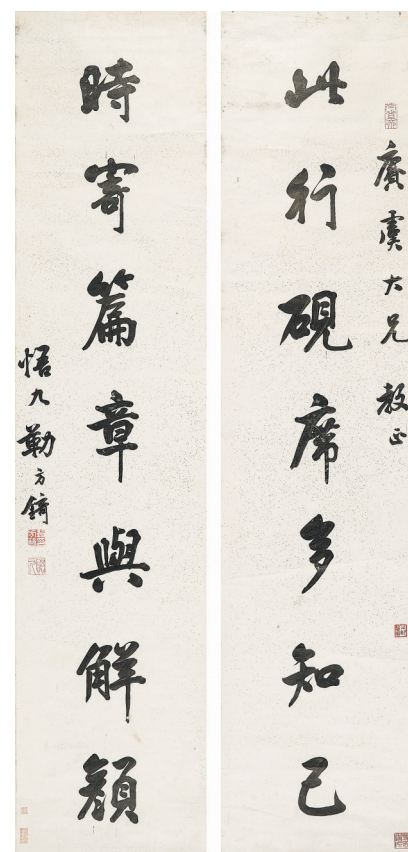 賡虞大兄教正
此行硯席多知己
時寄篇章與解顏
悟九勒方錡